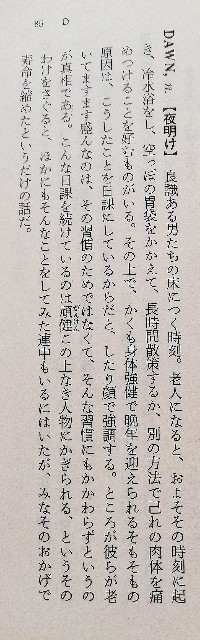 86 D
DAWN, n. 【夜明け】 良識ある男たちの床につく時刻。老人になると、およそその時刻に起
き、冷水浴をし、空っぽの胃袋をかかえて、長時間散策するか、別の方法で己れの肉体を痛
めつけることを好むものがいる。その上で、かくも身体強健で晩年を迎えられるそもそもの
原因は、こうしたことを日課にしているからだと、したり顔で強調する。ところが彼らが老
いてますます盛んなのは、その習慣のためではなくて、そんな習慣にもかかわらずというの
が真相である。こんな日課を続けているのは頑健この上なき人物にかぎられる、というその
わけをさぐると、ほかにもそんなことをしてみた連中もいるにはいたが、みなそのおかげで
寿命を縮めたというだけの話だ。